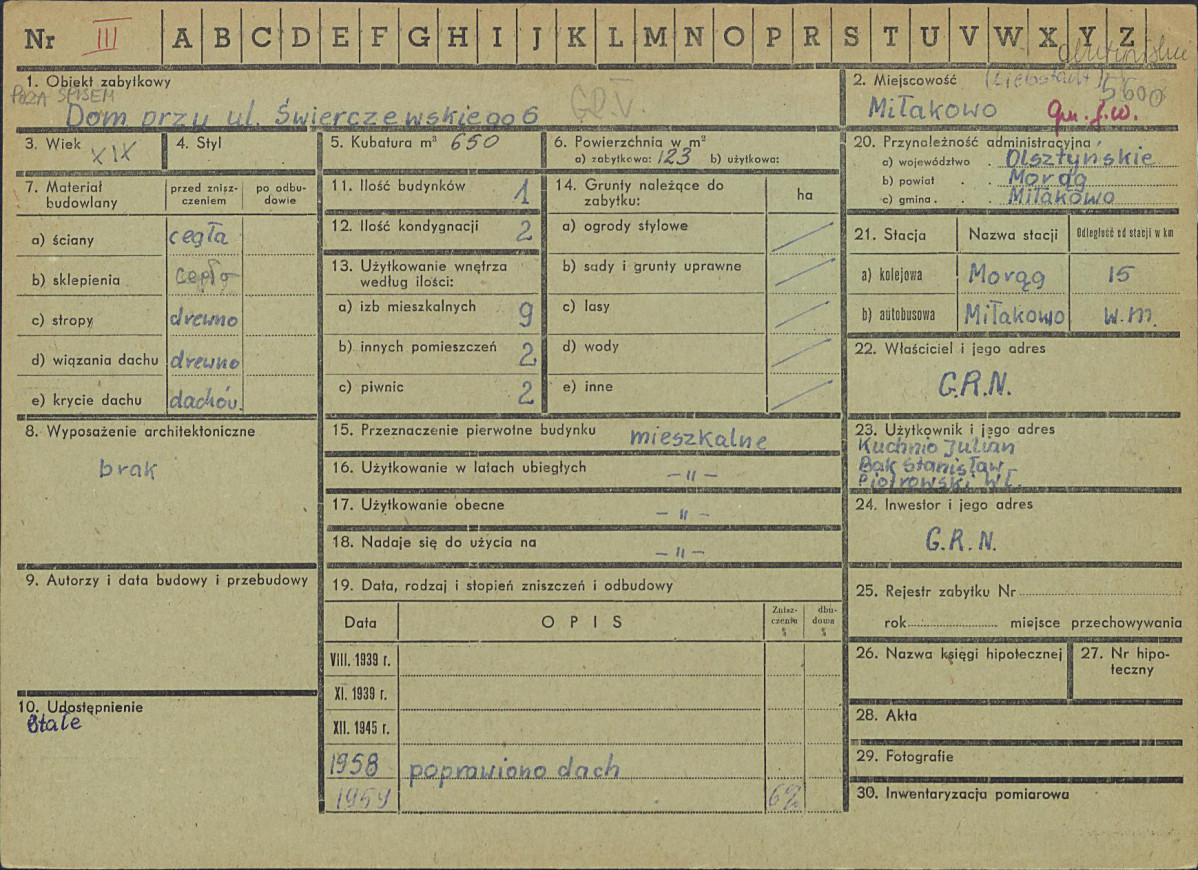 Nr III A B C D E F G H I J K L M N O P R S T U V W X Y Z
1. Obiekt zabytkowy
POZA SPISEM
GR.V.
Dom przy ul. Świerczewskiego 6
2. Miejscowość (Liebstadt) 5600
Miłakowo
3. Wiek XIX
4. Styl
5. Kubatura m³ 650
6. Powierzchnia w m²
a) zabytkowa: 123 b) użytkowa:
7. Materiał budowlany
przed znisz-
czeniem
po odbu-
dowie
a) ściany cegła
b) sklepienia cegła
c) stropy drewno
d) wiązania dachu drewno
e) krycie dachu dachów.
8. Wyposażenie architektoniczne
brak
9. Autorzy i data budowy i przebudowy
10. Udostępnienie
Stałe
11. Ilość budynków 1
12. Ilość kondygnacji 2
13. Użytkowanie wnętrza
według ilości:
a) izb mieszkalnych 9
b) innych pomieszczeń 2
c) piwnic 2
14. Grunty należące do
zabytku:
ha
a) ogrody stylowe
b) sady i grunty uprawne
c) lasy
d) wody
e) inne
15. Przeznaczenie pierwotne budynku mieszkalne
16. Użytkowanie w latach ubiegłych – „ –
17. Użytkowanie obecne – „ –
18. Nadaje się do użycia na – „ –
19. Data, rodzaj i stopień zniszczeń i odbudowy
Data
OPIS
Znisz-
czenia
%
dbu-
dowa
%
VIII. 1939 r.
XI. 1939 r.
XII. 1945 r.
1958 poprawiono dach
1959 6%
20. Przynależność administracyjna
a) województwo . Olsztyńskie
b) powiat . . Morąg
c) gmina . . Miłakowo
21. Stacja
Nazwa stacji
Odległość od stacji w km
a) kolejowa Morąg 15
b) autobusowa Miłakowo w.m.
22. Właściciel i jego adres
G.R.N.
23. Użytkownik i jego adres
Kuchnio Julian
Bąk Stanisław
Piotrowski Wł.
24. Inwestor i jego adres
G.R.N.
25. Rejestr zabytku Nr
rok miejsce przechowywania
26. Nazwa księgi hipotecznej
27. Nr hipo-
teczny
28. Akta
29. Fotografie
30. Inwentaryzacja pomiarowa